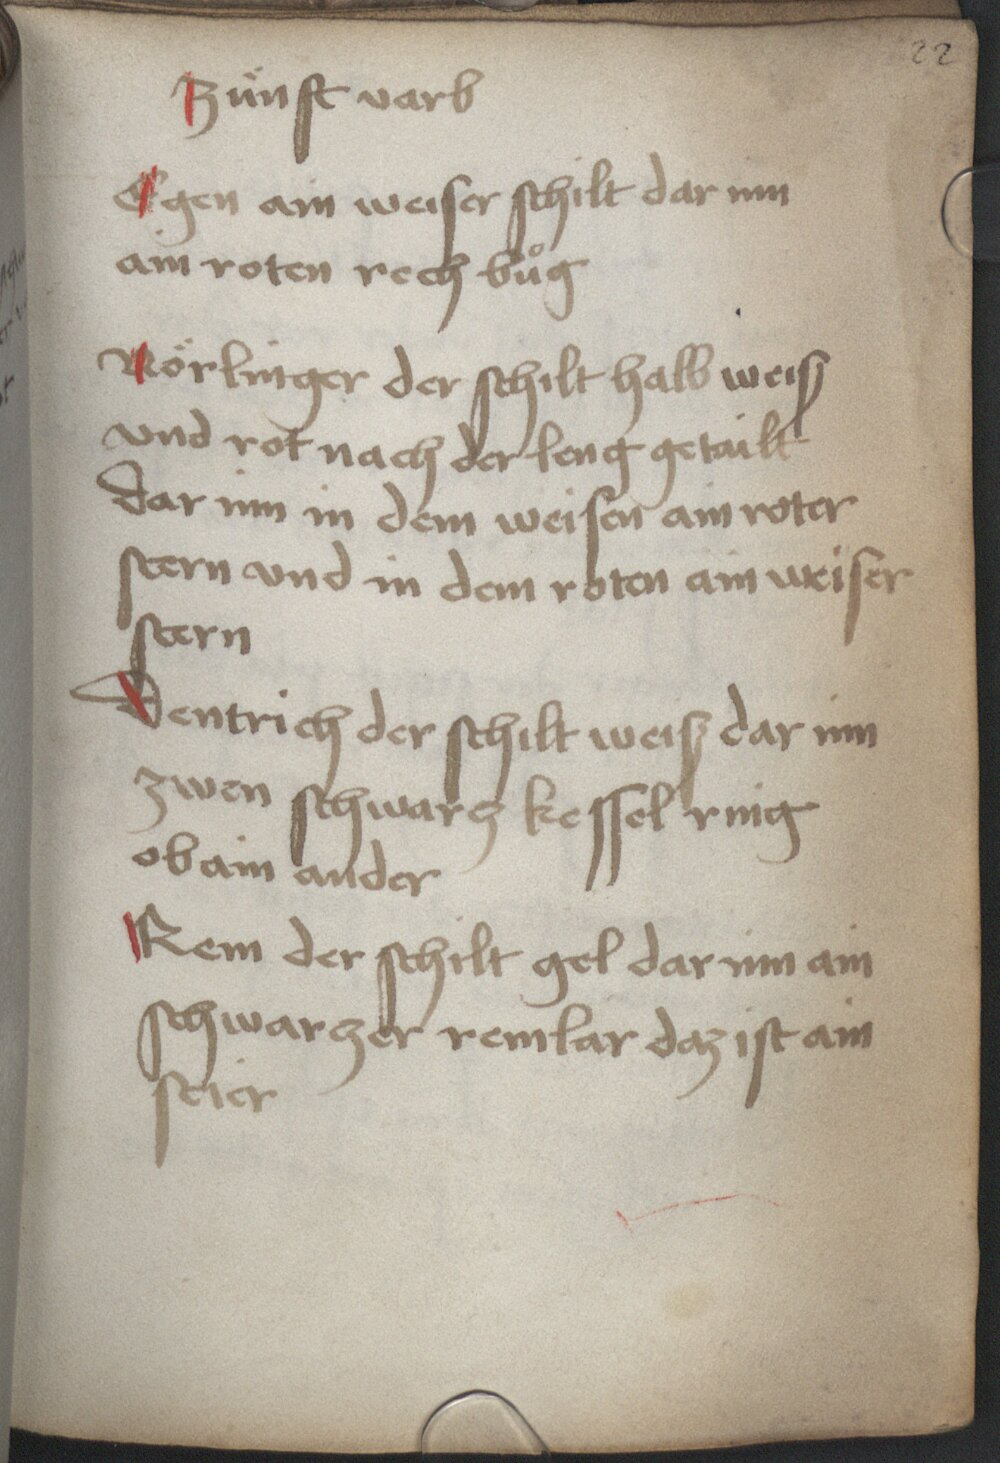 22
Zünft varb
Egen ain weiser schilt dar inn
ain roten rech bůg
Nörlinger der schilt halb weiß
vnd rot nach der leng getailt
dar inn in dem weisen ain roter
stern vnd in dem roten ain weiser
stern
Dentrich der schilt weiß dar inn
zwen schwarz kessel ring
ob ain ander
Rem der schilt gel dar inn ain
schwarzer remlar daz ist ain
steir